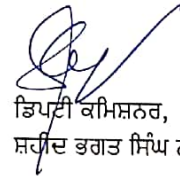 ਡਿਪਟੀ ਕਮਿਸ਼ਨਰ,
ਸ਼ਹੀਦ ਭਗਤ ਸਿੰਘ